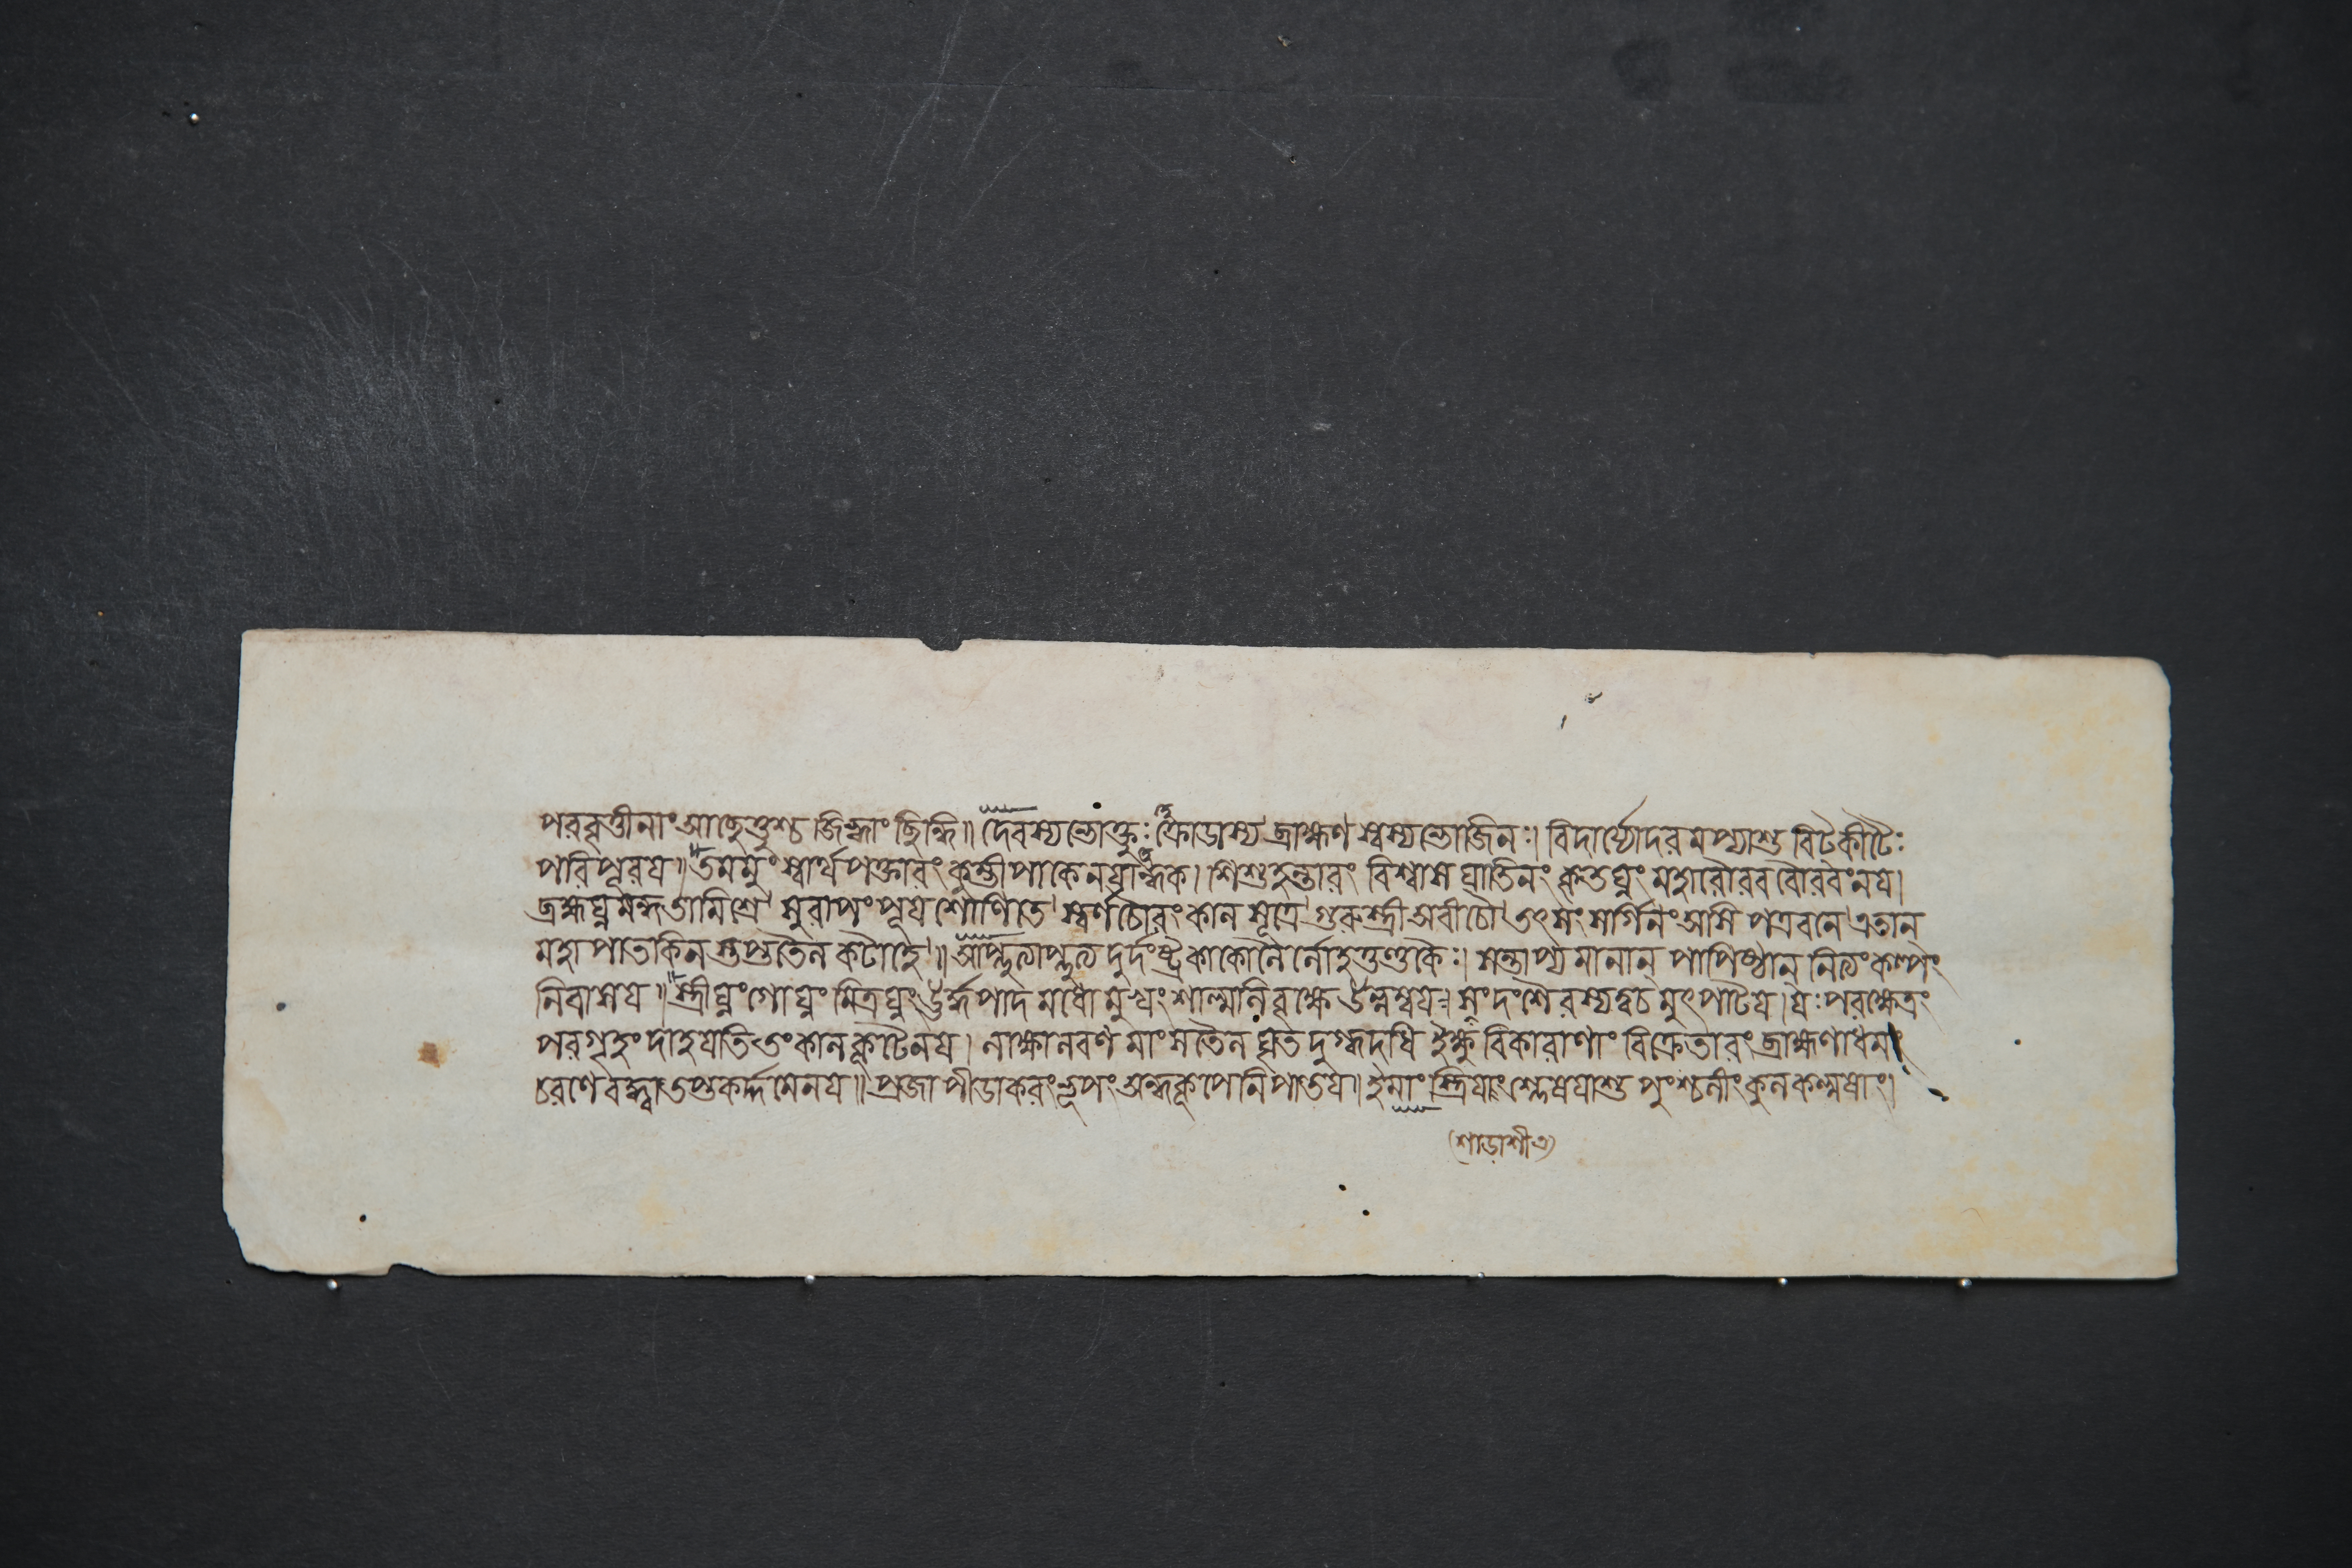 পরবৃত্তীনাং আছেত্তুশ্চ জিহ্বাং ছিন্ধি॥ দেবস্যভোক্তুঃ ক্রোডাস্য ব্রাহ্মণ স্বস্যভোজিনঃ। বিদার্য্যোদরমপ্যাশু বিটকীটৈঃ
পরিপূরয॥ তমমুং স্বার্থপক্তারং কুম্ভীপাকেনযান্ধক। শিশুহন্তারং বিশ্বাসঘাতিনং কৃতঘ্নং মহারৌরবরৌরবংনয।
ব্রহ্মঘ্নমন্ধতামিশ্রে সুরাপং পূযশোণিতে স্বর্ণচৌরং কালসূত্রে গুরুস্ত্রী অবীচৌ তৎসংসর্গিনং অসিপত্রবনে এতান্
মহাপাতকিন স্তপ্ততৈলকটাহে॥ আপ্লুত্যাপ্লুত্য দুর্দংষ্ট্র কাকোলৈর্লোহতুণ্ডকৈঃ। সন্তাপ্যমানান্ পাপিষ্ঠান্ নিত্যংকল্পং
নিবাসয॥ স্ত্রীঘ্নং গোঘ্নং মিত্রঘ্নং ঊর্দ্ধপাদমধোমুখং শাল্মলিবৃক্ষে উল্লম্বয। সংদংশৈরস্যত্বচমুৎপাটয। যঃ পরক্ষেত্রং
পরগৃহং দাহযেতি তং কালকূটেনয। লাক্ষালবণমাংসতৈল ঘৃতদুগ্ধদধি ইক্ষুবিকারাণাং বিক্রেতারং ব্রাহ্মণাধমং
চরণেবদ্ধ্বাতপ্তকর্দ্দমেনয॥ প্রজাপীডাকরংনৃপং অন্ধকূপেনিপাতয॥ ইমাং স্ত্রিযাং শ্লেষযাশু পুংশ্চলীংকুলকল্মষাং।
(শাড়াশীএ)